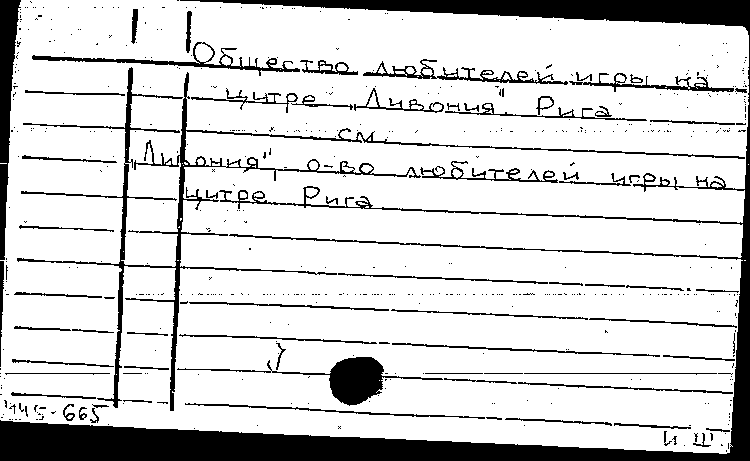 Общество любителей игры на
цитре „Ливония". Рига
см.
„Ливония", о-во любителей игры на
цитре Рига
И Ш